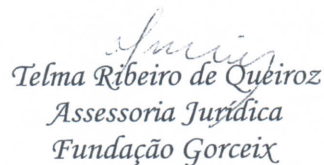 Telma Ribeiro de Queiroz
Assessoria Jurídica
Fundação Gorceix